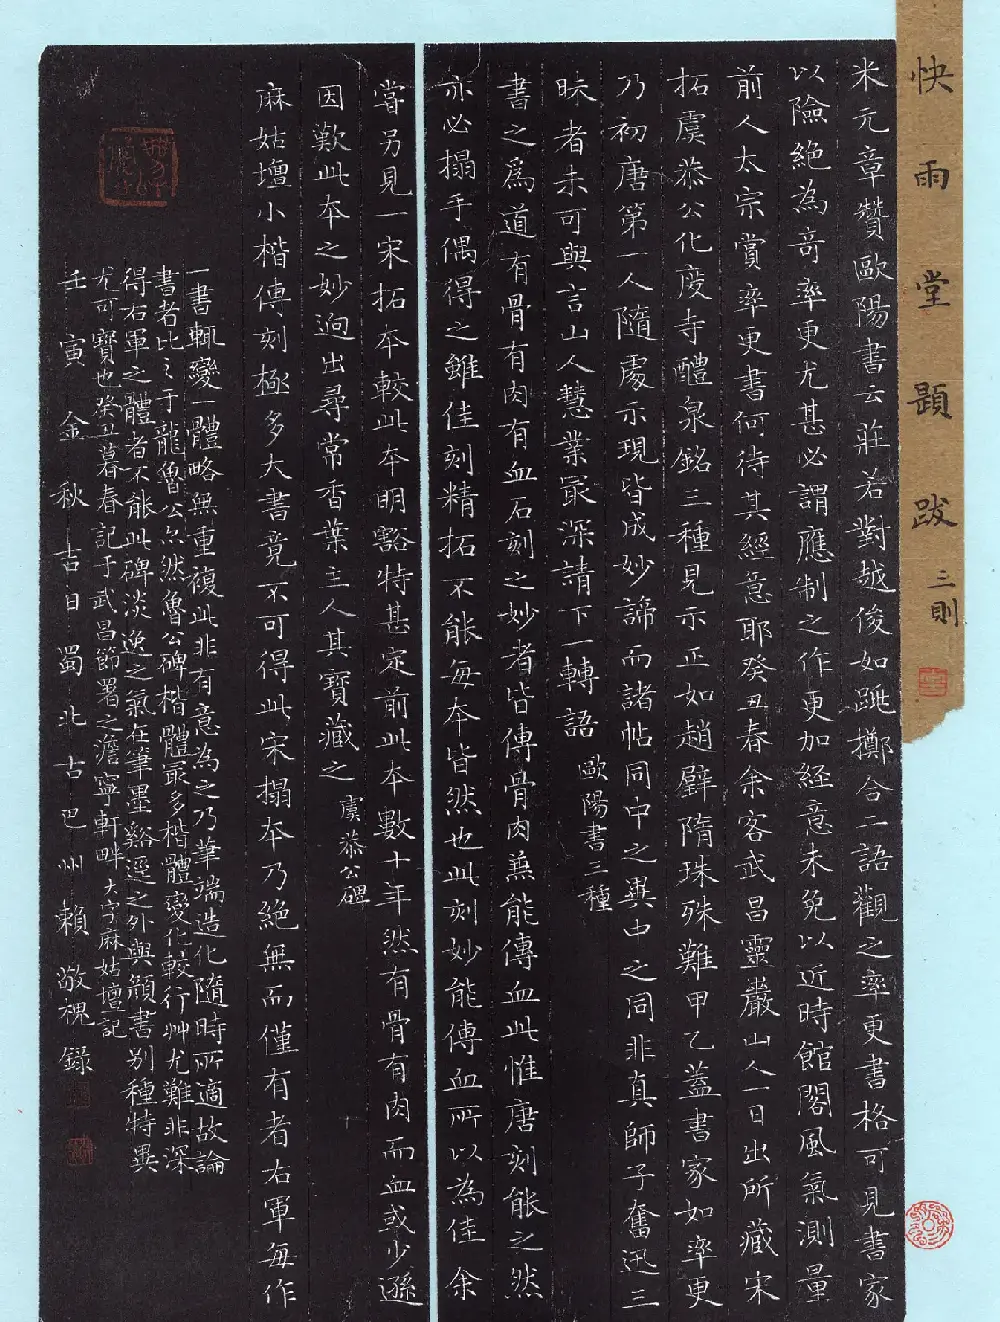 快雨堂題跋 三則
米元章贊歐陽書云莊若對越俊如跳擲合二語觀之率更書格可見書家
以險絕為奇率更尤甚必謂應制之作更加經意未免以近時館閣風氣測量
前人太宗賞率更書何待其經意耶癸丑春余客武昌靈巖山人一日出所藏宋
拓虞恭公化度寺醴泉銘三種見示正如趙璧隋珠殊難甲乙蓋書家如率更
乃初唐第一人隨處示現皆成妙諦而諸帖同中之異中之同非真師子奮迅三
昧者未可與言山人慧業最深請下一轉語 歐陽書三種
書之為道有骨有肉有血石刻之妙者皆傳骨肉無能傳血此惟唐刻能之然
亦必搨手偶得之雖佳刻精拓不能每本皆然也此刻妙能傳血所以為佳 余
嘗另見一宋拓本較此本明豁特甚定前此本數十年然有骨有肉而血或少遜
因歎此本之妙迥出尋常香葉主人其寶藏之 虞恭公碑
麻姑壇小楷傳刻極多大書竟不可得此宋搨本乃絕無而僅有者右軍每作
一書輒變一體略無重複此非有意為之乃筆端造化隨時所適故論
書者比之于龍魯公亦然魯公碑楷體最多楷體變化較行艸尤難非深
得右軍之體者不能此碑淡逸之氣在筆墨谿逕之外與顏書別種特異
尤可寶也癸丑暮春記于武昌節署之澹寧軒畔 大字麻姑壇記
壬寅金秋吉日蜀北古巴州賴敬槐錄